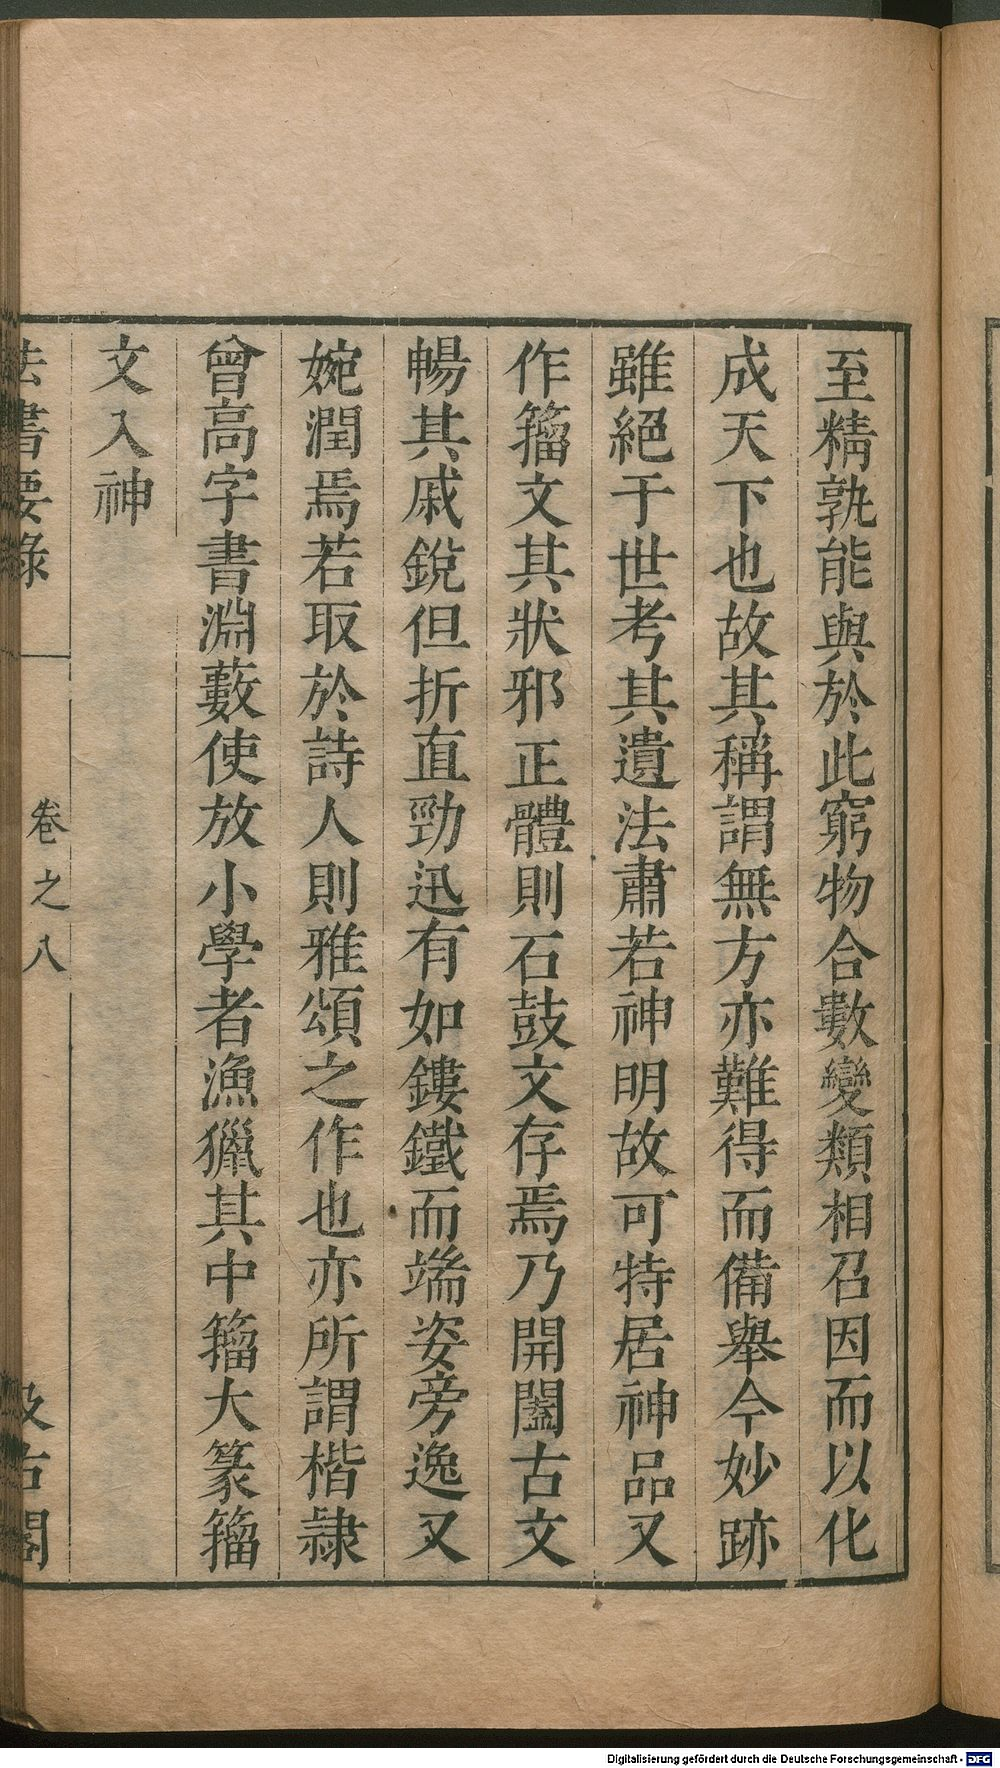 至精孰能與於此窮物合數變類相召因而以化
成天下也故其稱謂無方亦難得而備舉今妙跡
雖絕于世考其遺法肅若神明故可特居神品又
作籀文其狀邪正體則石鼓文存焉乃開闔古文
暢其戚銳但折直勁迅有如鏤鐵而端姿旁逸又
婉潤焉若取於詩人則雅頌之作也亦所謂楷隸
曾高字書淵藪使放小學者漁獵其中籀大篆籀
文入神
法書要錄 卷之八 汲古閣
Digitalisierung gefördert durch die Deutsche Forschungsgemeinschaft - DFG